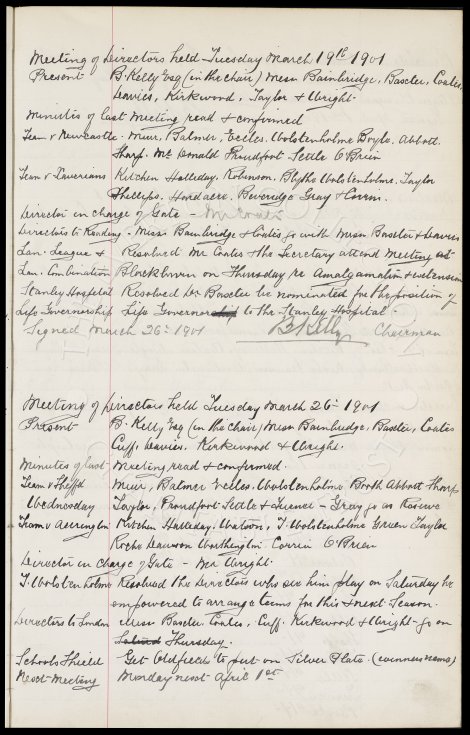 Meeting of Directors held Tuesday March 19th 1901
Present B. Kelly Esq (in the chair) Messrs Bainbridge, Baxter, Coates,
Davies, Kirkwood, Taylor & Wright.
Minutes of last Meeting read & confirmed
Team v Newcastle - Muir, Balmer, Eccles, Wolstenholme Boyle, Abbott
Sharp. McDonald Proudfoot Settle O'Brien
Team v Taverians Kitchen Halliday, Robinson, Blythe Wolstenholme, Taylor
Phillips, Beveridge Gray & Corrin.
Director in charge of Gate - Mr Coates
Directors to Reading - Messrs Bainbridge & Coates go with Messrs Baxter & Davies
Lan. League & Resolved Mr Coates & the Secretary attend Meeting at
Lan. Combination Blackburn on Thursday re Amalgamation & extension
Stanley Hospital Resolved Dr Baxter be nominated for the position of
Life Governorship Life Governor to the Stanley Hospital.
Signed March 26th 1901 B. Kelly Chairman
Meeting of Directors held Tuesday March 26th 1901
Present B. Kelly Esq (in the chair) Messrs Bainbridge, Baxter, Coates
Cuff, Davies, Kirkwood & Wright.
Minutes of last Meeting read & confirmed.
Team v Sheffd Muir, Balmer Eccles, Wolstenholme Booth Abbott Sharp
Wednesday Taylor, Proudfoot Settle & Turner - Gray go as Reserve
Team v Accrington Kitchen Halliday, Watson, T. Wolstenholme Green Taylor
Roche Dawson Worthington Corrin O'Brien
Director in charge of Gate - Mr Wright.
T. Wolstenholme Resolved the Directors who see him play on Saturday be
empowered to arrange terms for this & next Season.
Directors to London Messrs Baxter Coates, Cuff. Kirkwood & Wright go on
Thursday.
Schools Shield Get Oldfields to put on Silver Plate (winners name)
Next Meeting Monday next April 1st